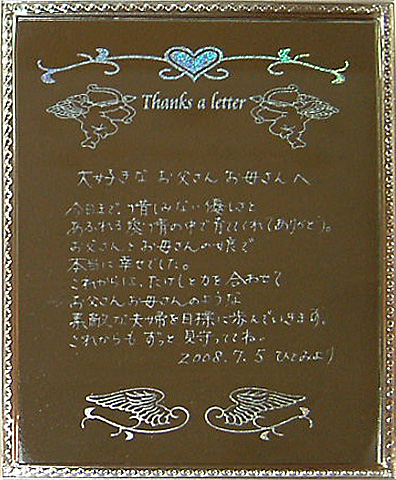 Thanks a letter
大好きな お父さん お母さんへ
今日まで、惜しみない優しさと
あふれる愛情の中で育ててくれてありがとう。
お父さんとお母さんの娘で
本当に幸せでした。
これからは、たけしと力を合わせて
お父さんお母さんのような
素敵な夫婦を目標に歩んでいきます。
これからも ずっと 見守っててね。
2008.7.5 ひとみより